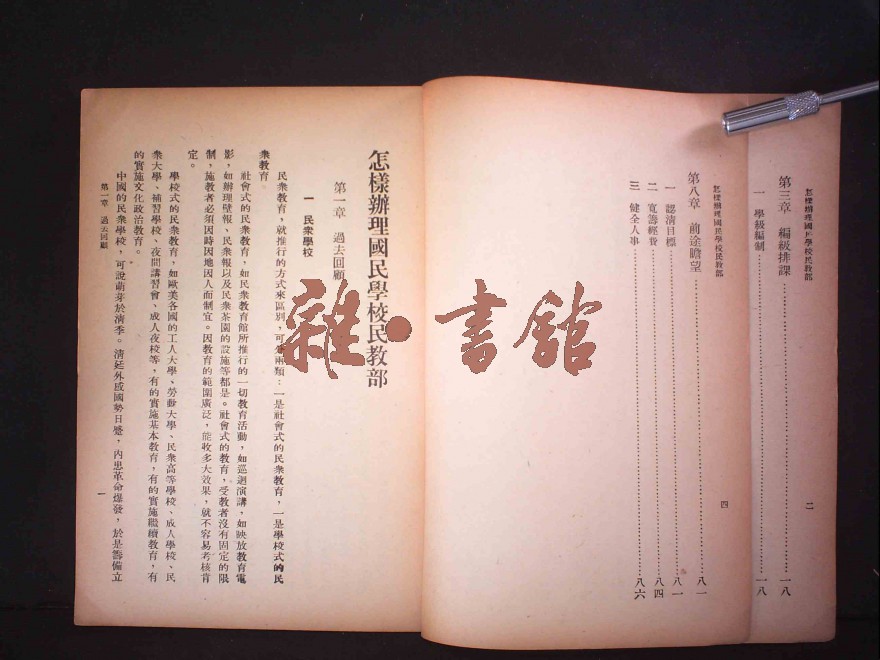 怎樣辦理國民學校民教部
第三章 編級排課
一 學級編制
一八
一八
二
怎樣辦理國民學校民教部
第八章 前途瞻望
八一
一 認清目標
八一
二 寬籌經費
八四
三 健全人事
八六
四
怎樣辦理國民學校民教部
第一章 過去回顧
一 民衆學校
民衆教育，就推行的方式來區別，可分兩類：一是社會式的民衆教育，一是學校式的民
衆教育。
社會式的民衆教育，如民衆教育館所推行的一切教育活動，如巡迴演講，如映放教育電
影，如辦理壁報、民衆報以及民衆茶園的設施等都是。社會式的教育，受教者沒有固定的限
制，施教者必須因時因地因人而制宜。因教育的範圍廣泛，能收多大效果，就不容易考核肯
定。
學校式的民衆教育，如歐美各國的工人大學、勞動大學、民衆高等學校、成人學校、民
衆大學、補習學校、夜間講習會、成人夜校等，有的實施基本教育，有的實施繼續教育，有
的實施文化政治教育。
中國的民衆學校，可說萌芽於清季。清廷外感國勢日蹙，內患革命爆發，於是籌備立
第一章 過去回顧
一
雜·書館